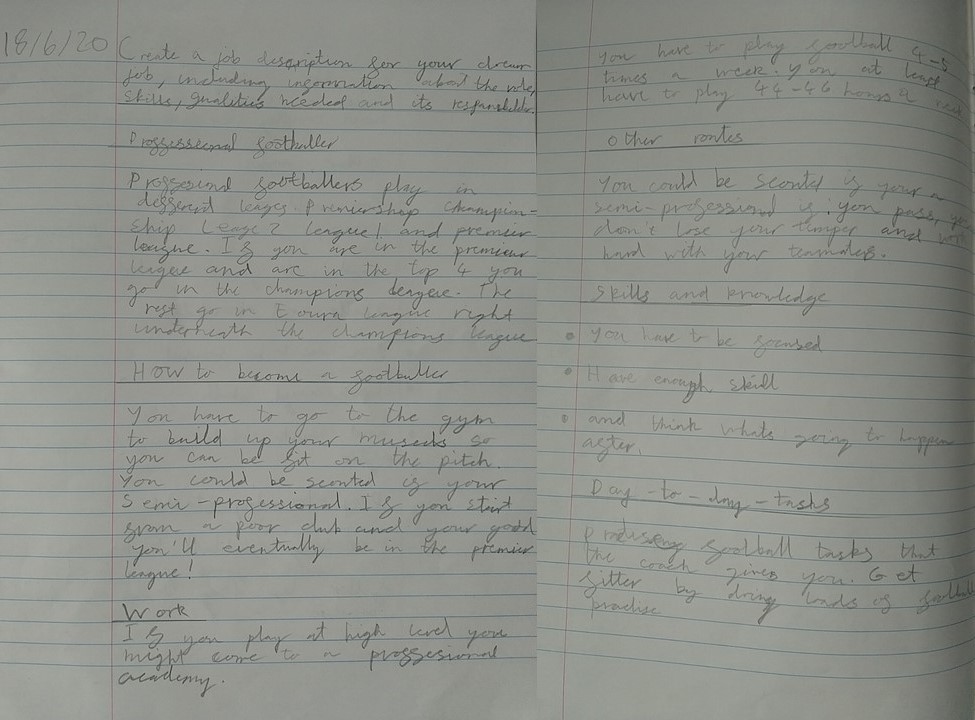 18/6/20
Create a job description for your dream
job, including information about the role,
skills, qualities needed and its
Proffessional footballer
footballers play in
leages. Premiership Champion-
ship League 2 league 1 and premier
league. If you are in the premier
league and are in the top 4 you
go in the champions league. The
rest go in Eoura league right
underneath the champions league
How to become a footballer
You have to go to the gym
to build up your so
you can be fit on the pitch.
You could be scouted if your
Semi-professional. If you start
from a poor club and your good
you'll eventually be in the premier
league!
Work
If you play at high level you
might come to a proffesional
academy.
You have to play football 4-5
times a week. You at least
have to play 44-46 hours a week
Other routes
You could be scouted if your a
semi-professional if you pass,
don't lose your temper and
hard with your
Skills and knowledge
• You have to be focused
• Have enough skill
• and think whats going to happen
after.
Day-to-day-tasks
football tasks that
the coach gives you. Get
fitter by doing loads of football
practise